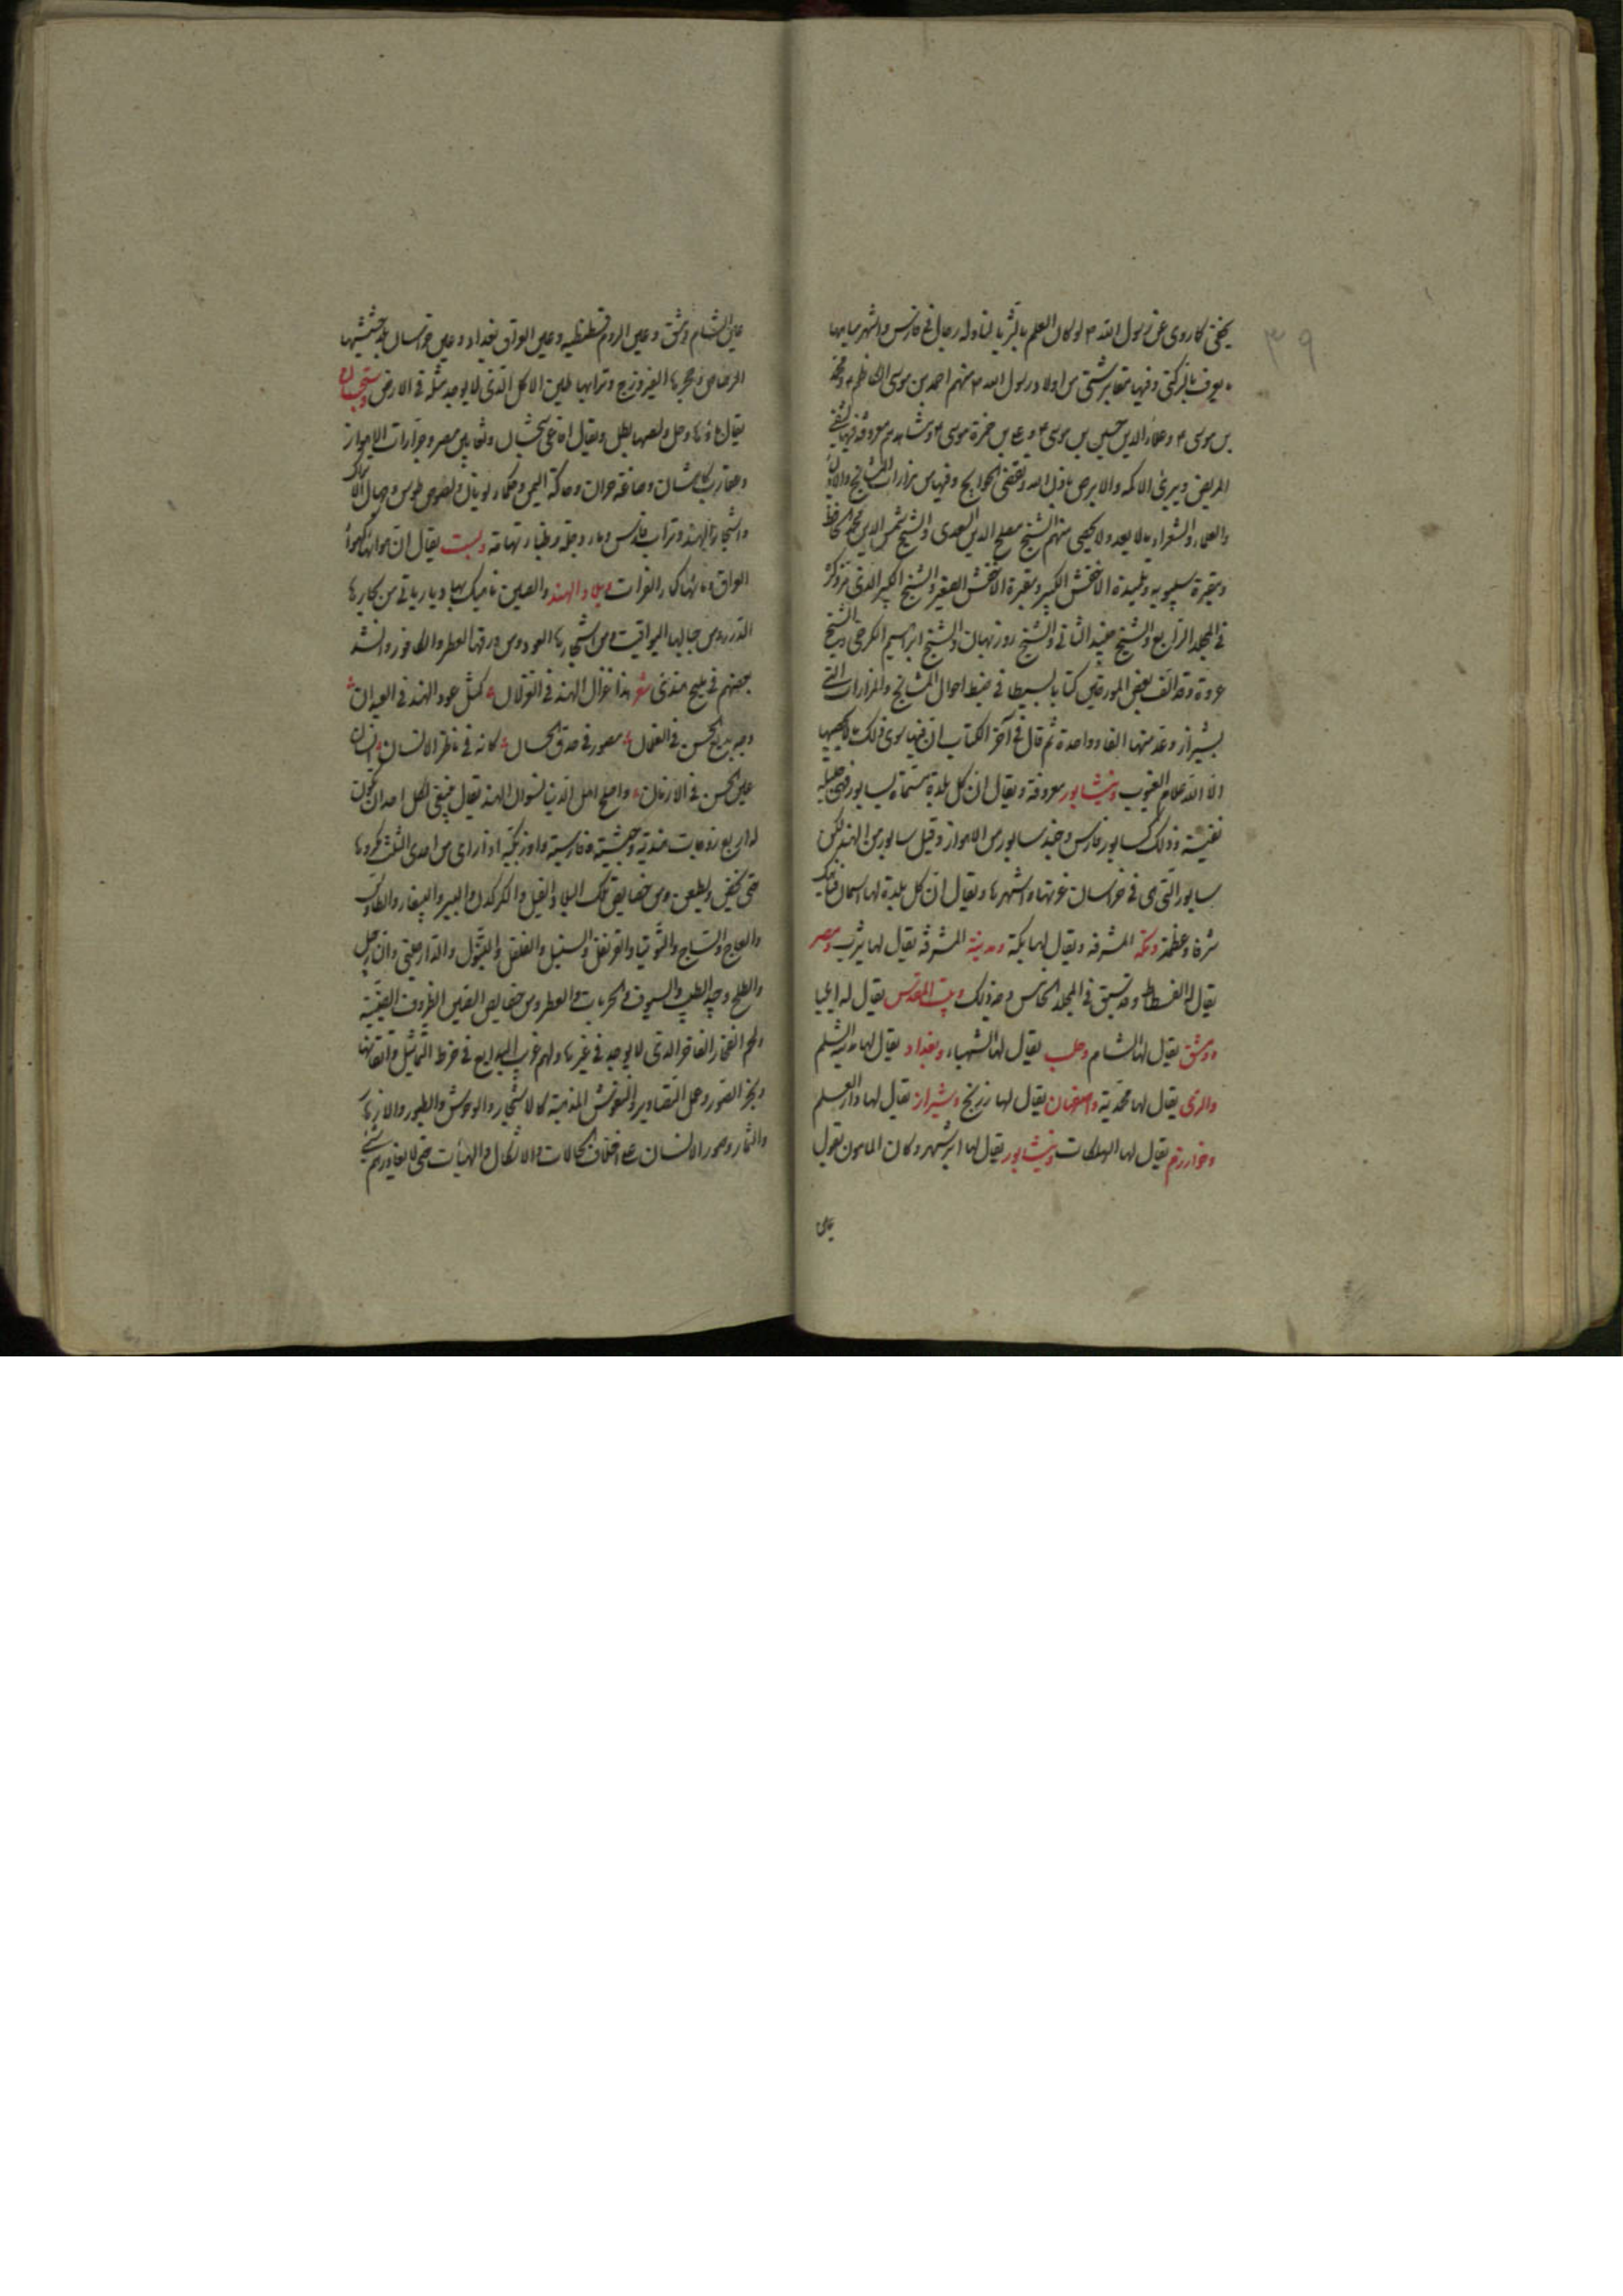 ٣٩
كما روى عن رسول الله لو كان العلم بالثريا لتناوله رجال في فارس واشهر مياهها
يعرف بالركني وفيها مقابر شتى من اولاد رسول الله منهم احمد بن موسى الكاظم ومحمد
بن موسى وعلاء الدين حسين بن موسى
المريض ويبرئ الاكمه والابرص باذن الله وتقضى الحوايج وفيها من مزارات المشايخ والاولياء
والعلماء والشعراء ما لا يعد ولا يحصى منهم الشيخ مصلح الدين السعدي والشيخ شمس الدين محمد الحافظ
ومقبرة سيبويه وتلميذه الاخفش الكبير ومقبرة الاخفش الصغير والشيخ الكبير الذي مر ذكره
في المجلد الرابع والشيخ جنيد الثاني والشيخ روزبهان والشيخ ابراهيم الكرخي والشيخ
عروة وقد الف بعض المورخين كتابا بسيطا في ضبط احوال المشايخ والمزارات التي
بشيراز وعد منها الفا وواحدة ثم قال في آخر الكتاب ان فيها سوى ذلك ما لا يحصيها
الا الله علام الغيوب ونيشابور معروفة ويقال ان كل بلدة مسماة بسابور فهي جليلة
نفيسة وذلك كسابور فارس وجند سابور من الاهواز وقيل سابور من الهند لكن
سابور التي هي في خراسان غرتها واشهرها ويقال ان كل بلدة لها اسمان فناهيك
شرفا وعظمة ومكة المشرفة ويقال لها بكة ومدينة المشرفة يقال لها يثرب ومصر
يقال لها الفسطاط وقد سبق في المجلد الخامس وجه ذلك وبيت المقدس يقال له ايليا
ودمشق يقال لها الشام وحلب يقال لها الشهباء وبغداد يقال لها مدينة السلم
والري يقال لها محمدية واصفهان يقال لها زرنج وشيراز يقال لها دار العلم
وخوارزم يقال لها الهلكات ونيشابور يقال لها ابرشهر وكان المامون يقول
عين الشام دمشق وعين الروم قسطنطنيه وعين العراق بغداد وعين خراسان
وحجرها الفيروزج وترابها طين الاكل الذي لا يوجد مثله في الارض وسجستان
يقال ماؤها وحل ولصها بطل ويقال افاعي سجستان وثعابين مصر وجرارات الاهواز
وعقارب كاشان وصاغة حران وحاكة اليمن وحكماء يونان ولصوص طوس وجمال الاتراك
واشجار الهند وتراب فارس وماء دجلة وظباء تهامة وبست يقال ان هواها كهواء
العراق وماؤها كماء الفرات وبلاد الهند والصين ناهيك بها ديارا ياتي من بحارها
الدر ومن جبالها اليواقيت ومن اشجارها العود ومن ورقها العطر والكافور وانشد
بعضهم في مليح هندي شعر هذا غزال الهند في الغزلان كمثل عود الهند في العيدان
وجه بديع الحسن في الغلمان مصور في حدق الحسان كانه في ناظر الانسان انسان
عين الحسن في الازمان واملح اهل الدنيا نسوان الهند يقال ينبغي لكل احد ان تكون
له اربع زوجات هندية وحبشية وفارسية واوزبكية اذا راى من احدى الثلث مكروها
ومن خصايص تلك البلاد الفيل والكركدن والببر والببغاء والطاوس
والعاج والساج والتوتيا والقرنفل والسنبل والفلفل والتنبول والدارصيني والنارجيل
والطلح وجيد الطيب والسيوف والحربات والعطر ومن خصايص الصين الظروف الصينية
ولهم الفخار الفاخر الذي لا يوجد في غيرها ولهم غرب البدايع في خرط التماثيل واتقانها
الصور وعمل التصاوير والنقوش المذهبة كالاشجار والوحوش والطيور والازهار
والثمار وصور الانسان على اختلاف الحالات والاشكال والهيئات حتى لا يغادرهم شيء